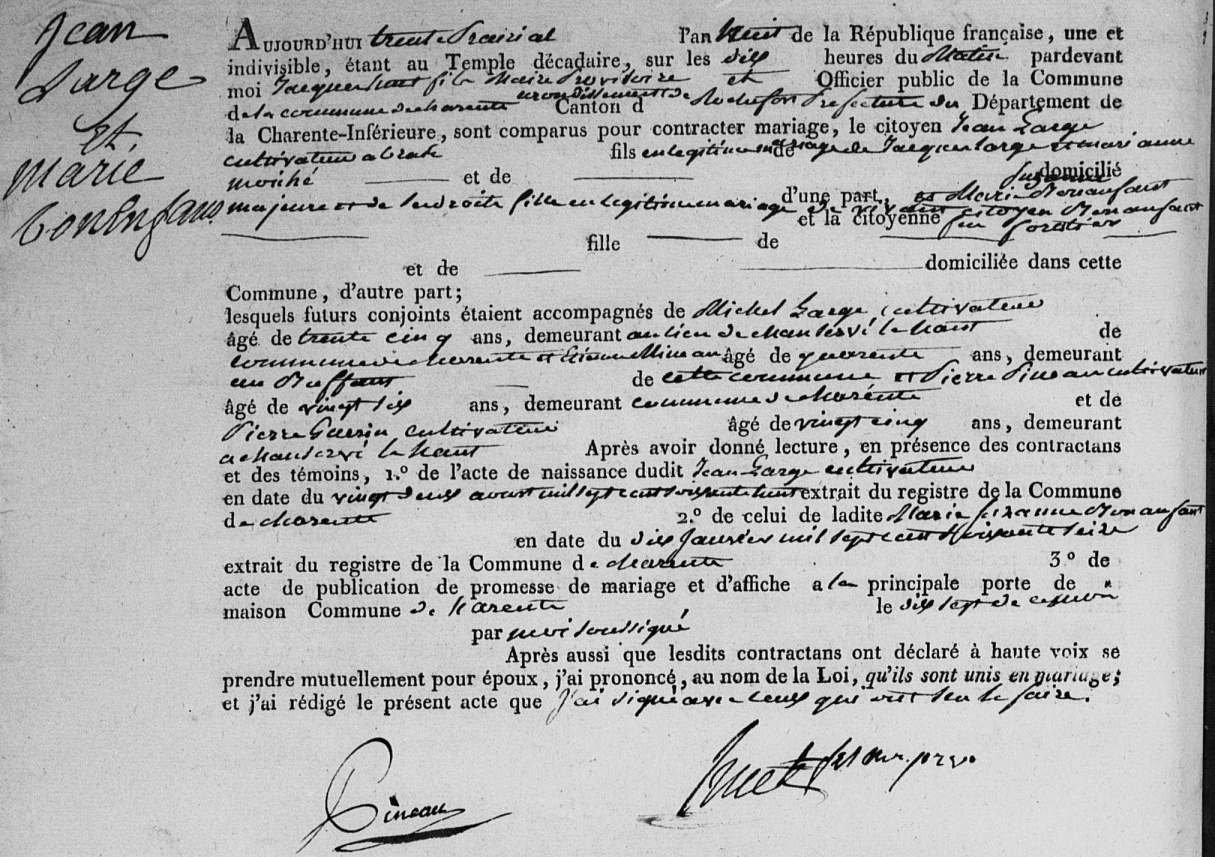 Jean
Large
Et
marie
bonenfans
AUJOURD'HUI trente Prairial l'an huit de la République française, une et
indivisible, étant au Temple décadaire, sur les dix heures du Matin pardevant
moi Jacques huet fils Maire Provisoire et Officier public de la Commune
de la commune de charente arrondissement de Canton d Rochefort Prefecture du Département de
la Charente-Inférieure, sont comparus pour contracter mariage, le citoyen Jean Large
cultivateur fils en legitime mariage de Jacques large et marianne
domicilié
et de d'une part, et Marie Suzanne Bonanfant
majeure et de fille en legitime mariage de citoyen Bonanfant
et la citoyenne
fille de
et de domiciliée dans cette
Commune, d'autre part;
lesquels futurs conjoints étaient accompagnés de Michel Large, cultivateur
âgé de trente cinq ans, demeurant au lieu de chanservé le haut de
commune de charente et Etienne Mineau âgé de quarente ans, demeurant
de cette commune et Pierre Pineau cultivateur
âgé de vingt six ans, demeurant commune de charente et de
Pierre Guerin cultivateur âgé de vingt cinq ans, demeurant
a chanservé le haut Après avoir donné lecture, en présence des contractans
et des témoins, 1.º de l'acte de naissance dudit Jean Large cultivateur
en date du vingt deux aoust mil sept cent soixante huit extrait du registre de la Commune
de charente 2.º de celui de ladite Marie suzanne Bonanfant
en date du dix Janvier mil sept cent soixante seize
extrait du registre de la Commune de charente 3.º de
acte de publication de promesse de mariage et d'affiche a la principale porte de
maison Commune de harente le dix sept de ce mois
par moi soussigné
Après aussi que lesdits contractans ont déclaré à haute voix se
prendre mutuellement pour époux, j'ai prononcé, au nom de la Loi, qu'ils sont unis en mariage;
et j'ai rédigé le présent acte que J'ai signé avec ceux qui ont seu le faire.
Pineau
huet fils